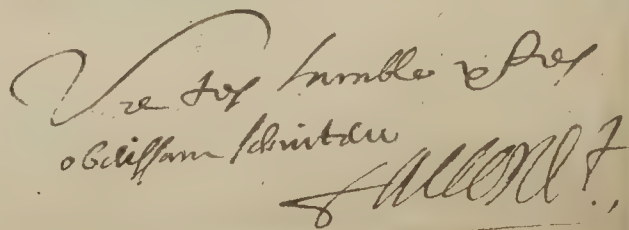 Vre tres humble & tres
obeissant serviteur